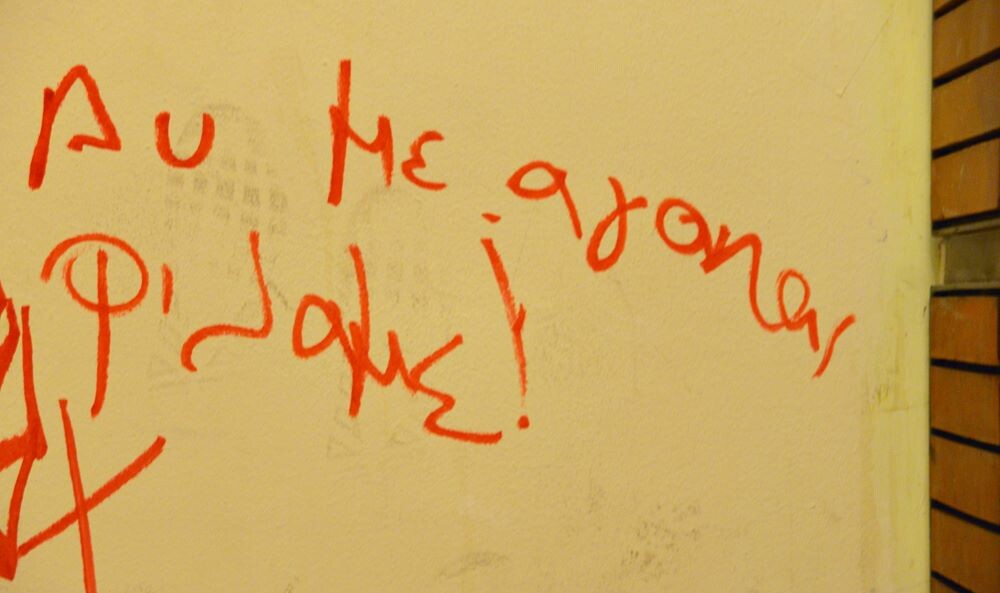 Αν με αγαπας
Φιλα με!